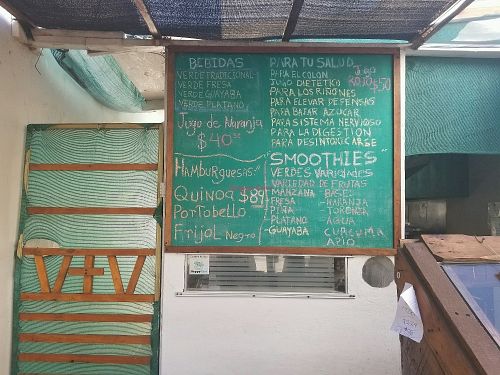 BEBIDAS
VERDE TRADICIONAL
VERDE FRESA
VERDE GUAYABA
VERDE PLATANO
Jugo de Naranja
$40
HAMBURGUESAS:
QUINOA $89
PORTOBELLO
FRIJOL NEGRO
PARA TU SALUD
PARA EL COLON
JUGO DIETETICO
PARA LOS RIÑONES
PARA ELEVAR DEFENSAS
PARA BAJAR AZUCAR
PARA SISTEMA NERVIOSO
PARA LA DIGESTION
PARA DESINTOXICARSE
Jugo
ROJO $50
"SMOOTHIES"
VERDES VARIADES
VARIEDAD DE FRUTAS
MANZANA BASE:
FRESA - NARANJA
PIÑA
PLATANO - AGUA
-GUAYABA CURCUMA
APIO